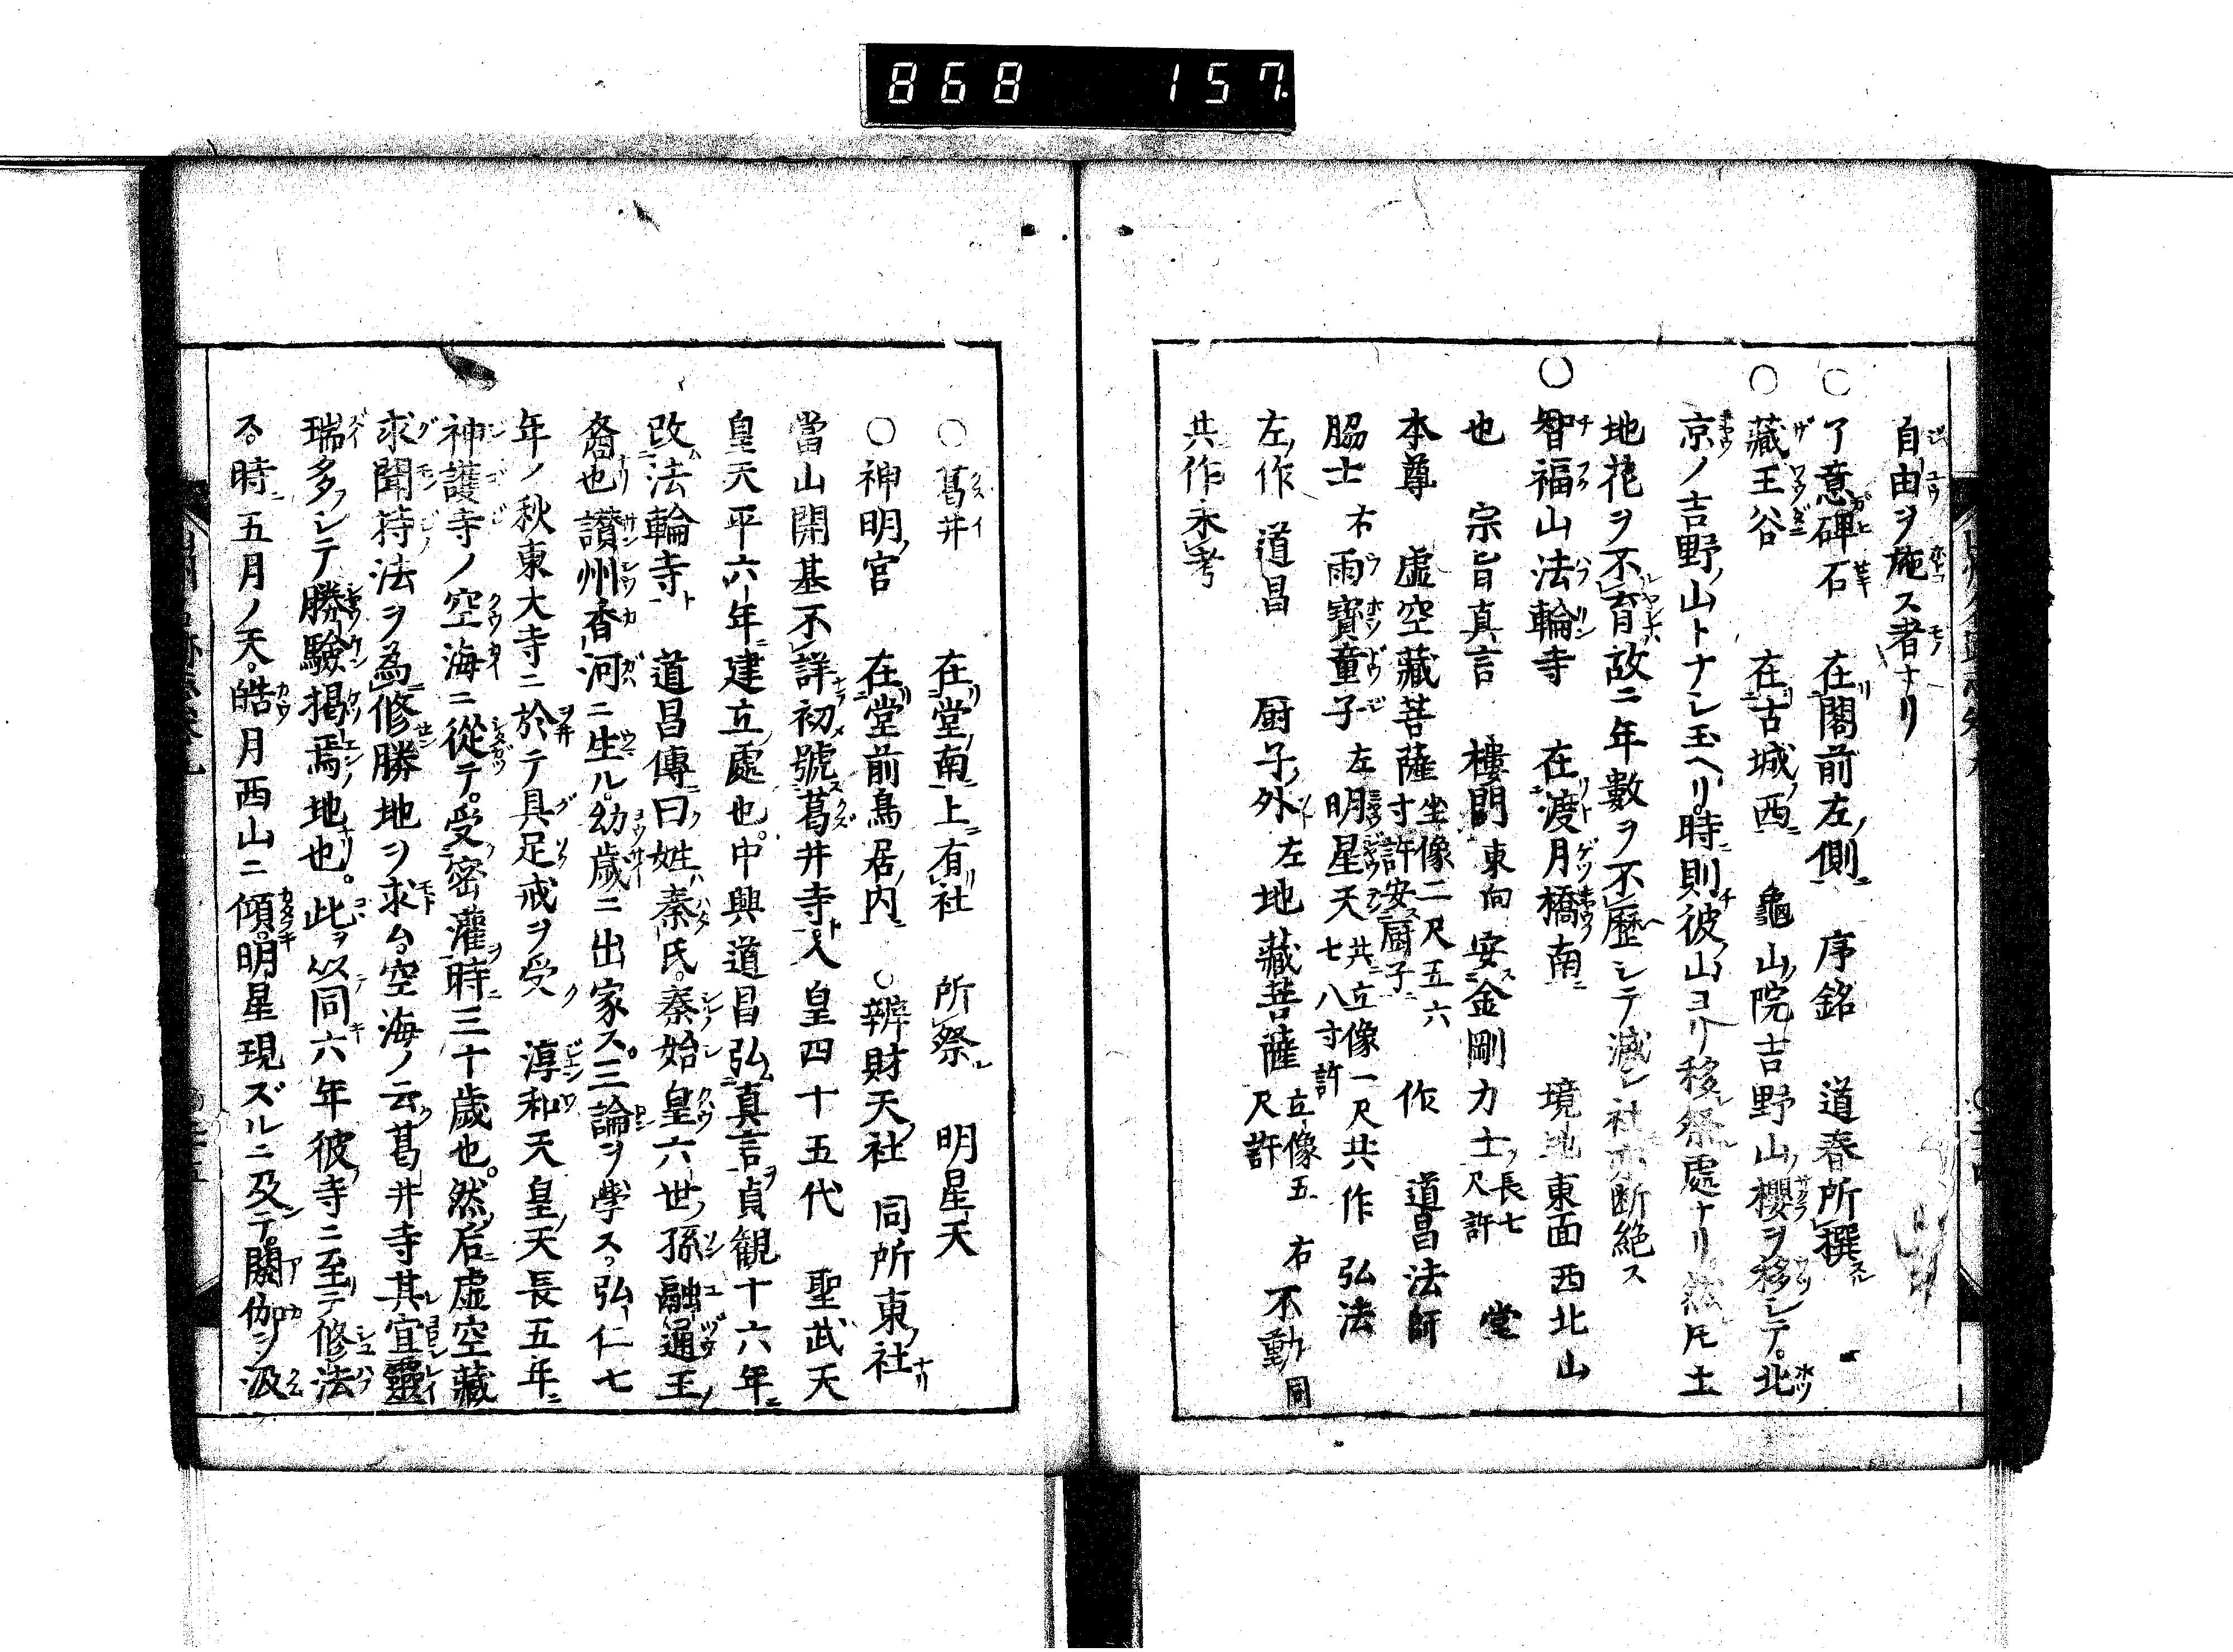 868 157
自由ヲ施ス者ナリ
○了意碑石 在閣前左ノ側ニ 序銘 道春所撰
○藏王谷 在古城ノ西ニ 龜山ノ院吉野山ノ櫻ヲ移シテ。北
京ノ吉野ノ山トナシ玉ヘリ。時ニ則彼ノ山ヨリ移シ祭ル處ナリ。然ドモ土
地花ヲ不育故ニ年數ヲ不歷シテ滅シ社亦断絶ス
○智福山法輪寺 在渡月橋ノ南ニ 境地東面西北山
也 宗旨真言 樓門東向 安金剛力士ノ長七尺許 堂
本尊 虚空藏菩薩 坐像二尺五六寸許安ス厨子ニ 作 道昌法師
脇士 右雨寶童子 左明星天 共ニ立像一尺七八寸許 共作 弘法
左ノ作 道昌 厨子ノ外 左地藏菩薩 立像五尺許 右不動同
共作未考
○葛井 在堂ノ南ニ上ニ有社 所祭 明星天
○神明ノ宮 在堂前鳥居ノ内ニ ○辨財天ノ社 同所東ノ社ナリ
當山開基不詳初メ號ス葛井寺ト人皇四十五代 聖武天
皇天平六年ニ建立ノ處也。中興道昌弘ム真言ヲ貞観十六年ニ
改ム法輪寺ト 道昌傳ニ曰ク姓ハ秦氏。秦ノ始皇六世ノ孫融通王ノ
裔也讃州香河ニ生ル。幼歲ニ出家ス。三論ヲ學ス。弘仁七
年ノ秋東大寺ニ於テ具足戒ヲ受ク 淳和天皇ノ天長五年ニ
神護寺ノ空海ニ從テ。受ク密灌ヲ時ニ三十歲也。然ノ后ニ虚空藏
求聞持法ヲ為ニ修セン勝地ヲ求ム。空海ノ云ク葛井寺其宜靈
瑞多フシテ勝驗掲焉ノ地也。此ヲ以テ同キ六年彼ノ寺ニ至リテ修法
ス。時ニ五月ノ天。皓月西山ニ傾キ。明星現ズルニ及ンテ。閼伽ヲ汲